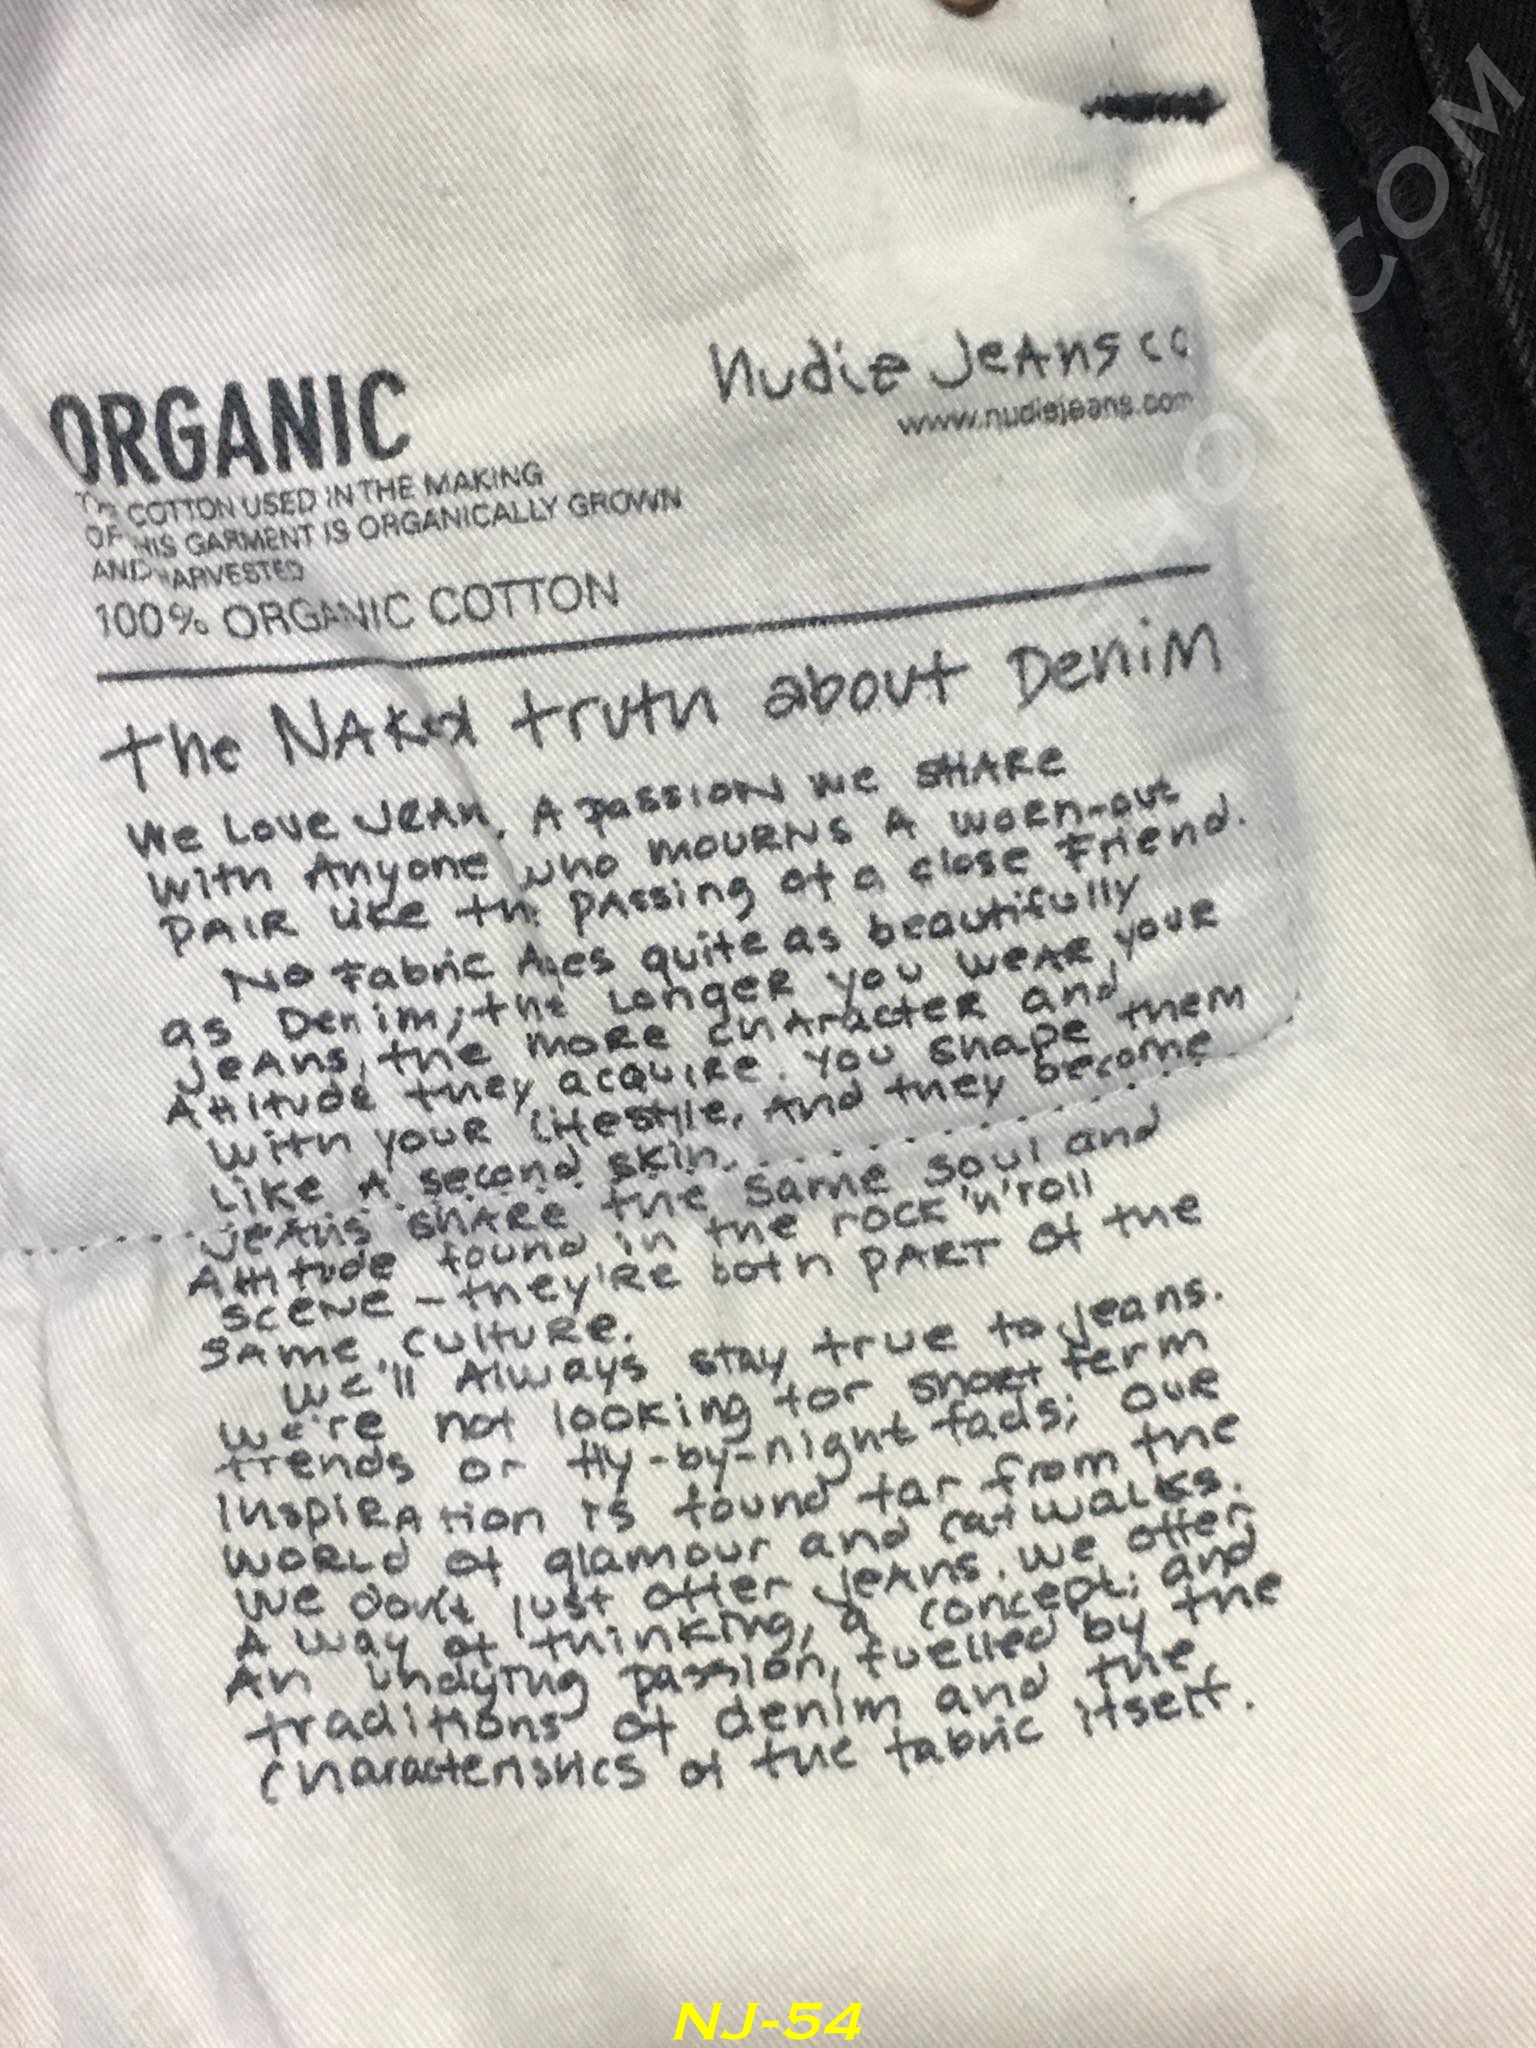 ORGANIC
COTTON USED IN THE MAKING
OF THIS GARMENT IS ORGANICALLY GROWN
AND HARVESTED
100% ORGANIC COTTON
nudie Jeans co
www.nudiejeans.com
The Naked truth about Denim
We Love Jean. A passion we share
with Anyone who mourns a worn-out
pair like the passing of a close friend.
No fabric Ages quite as beautifully
as Denim; the longer you wear your
jeans, the more character and
Attitude they acquire. You shape them
with your lifestyle, and they become
Like a second skin.
Jeans share the same soul and
Attitude found in the rock'n'roll
scene - they're both part of the
same culture.
We'll Always stay true to jeans.
We're not looking for short term
trends or fly-by-night fads; our
inspiration is found far from the
world of glamour and catwalks.
We don't just offer jeans. We offer
A way of thinking, a concept; and
An undying passion, fuelled by the
traditions of denim and the
characteristics of the fabric itself.
COM
NJ-54